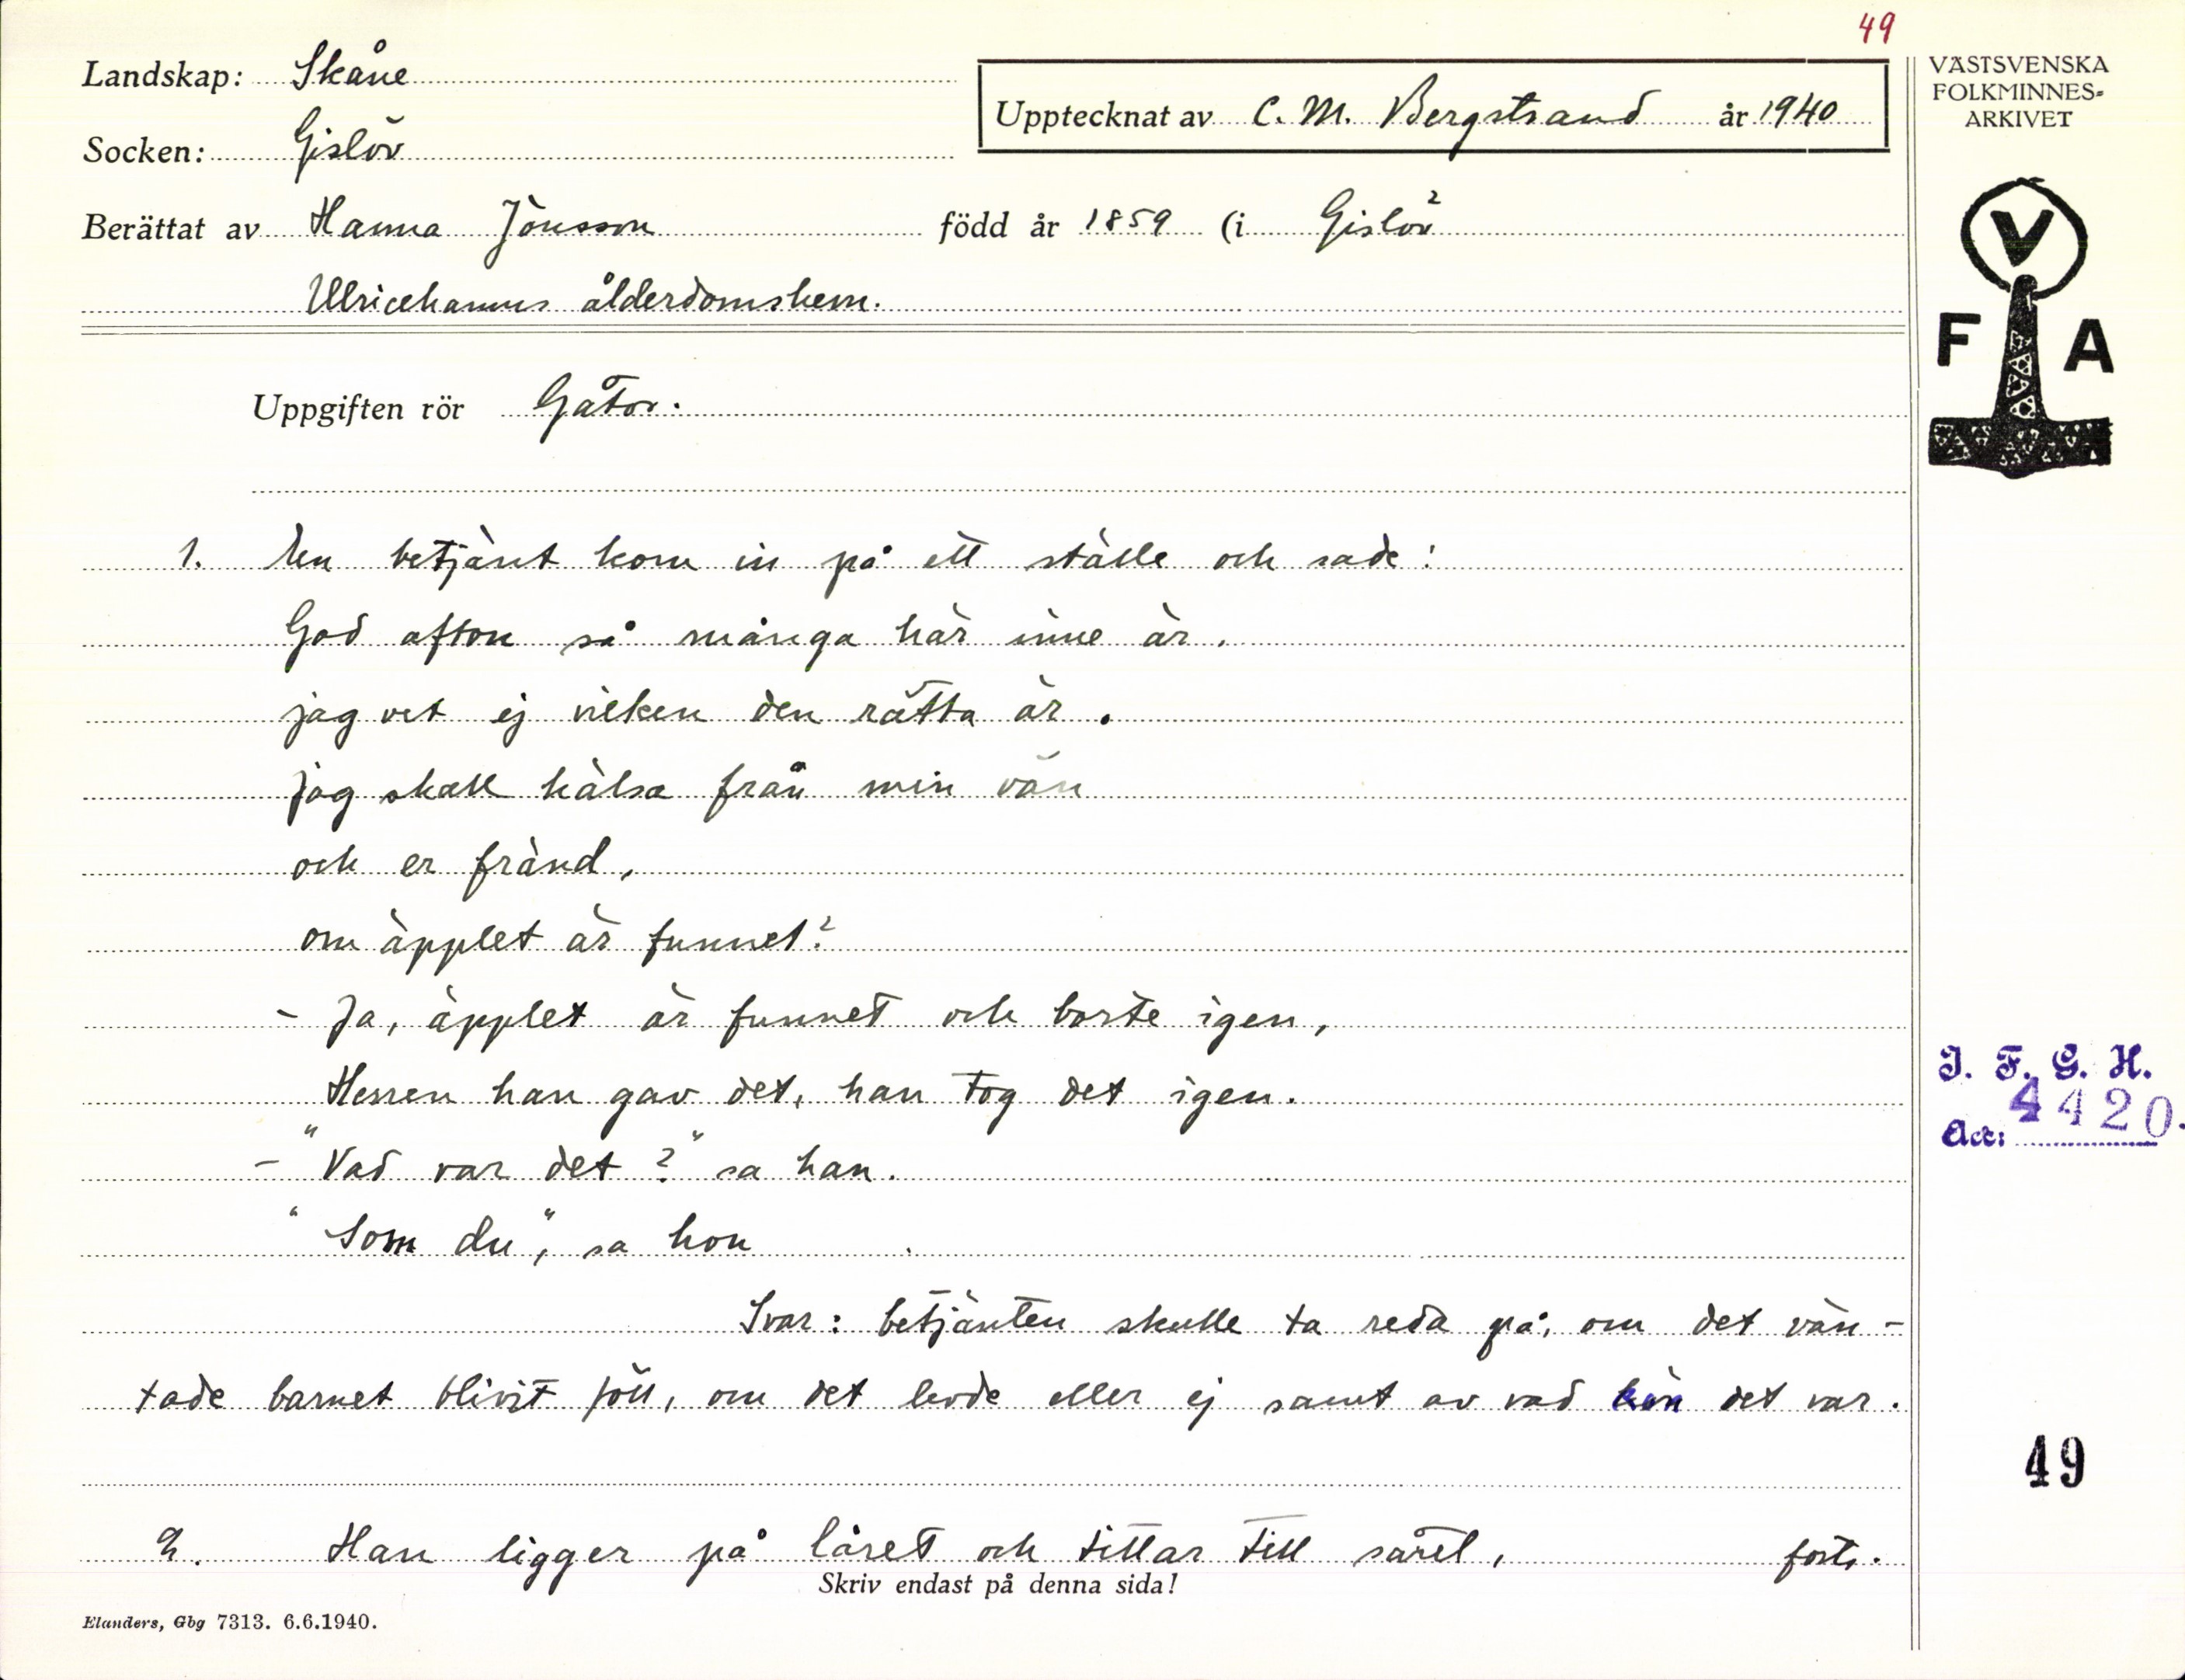 49
Landskap: Skåne
Upptecknat av C. M. Bergstrand år 1940
Socken: Gislöv
Berättat av Hanna Jönsson född år 1859 (i Gislöv
Ulricehamns ålderdomshem.
Uppgiften rör Gåtor.
1. En betjänt kom in på ett ställe och sade:
God afton så många här inne är,
jag vet ej vilken den rätta är.
Jag skall hälsa från min vän
och er fränd,
om äpplet är funnet?
- Ja, äpplet är funnet och borte igen,
Herren han gav det, han tog det igen.
- "Vad var det?" sa han.
"Som du", sa hon.
Svar: betjänten skulle ta reda på, om det vän-
tade barnet blivit fött, om det levde eller ej samt av vad kön det var.
2. Han ligger på låret och tittar till såret, forts.
Skriv endast på denna sida!
Elanders, Gbg 7313. 6.6.1940.
VÄSTSVENSKA
FOLKMINNES-
ARKIVET
V
F A
I. F. G. H.
Acc: 4420.
49